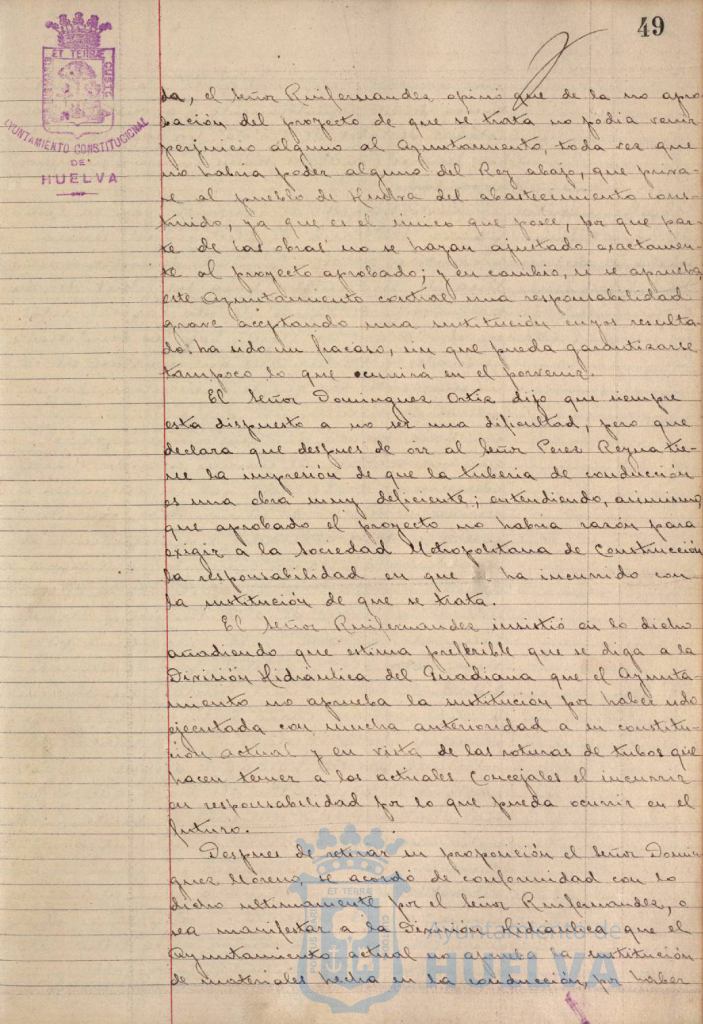 49
ET TERRÆ CUSTO
AYUNTAMIENTO CONSTITUCIONAL
DE
HUELVA
da, el Señor Ruifernandez opinó que de la no apro-
bación del proyecto de que se trata no podia venir
perjuicio alguno al Ayuntamiento, toda vez que
no habria poder alguno del Rey abajo, que priva-
se al pueblo de Huelva del abastecimiento cons-
truido, ya que es el único que posee, por que par-
te de las obras no se hayan ajustado exactamen-
te al proyecto aprobado; y en cambio, si se aprueba,
este Ayuntamiento contrae una responsabilidad
grave aceptando una sustitución cuyos resulta-
dos ha sido un fracaso, sin que pueda garantizarse
tampoco lo que ocurrirá en el porvenir.
El Señor Dominguez Ortiz dijo que siempre
está dispuesto a no ser una dificultad, pero que
declara que despues de oir al Señor Perez Reyna tie-
ne la impresión de que la tuberia de conducción
es una obra muy deficiente; entendiendo, asimismo,
que aprobado el proyecto no habria razón para
exigir a la Sociedad Metropolitana de Construcción
la responsabilidad en que ha incurrido con
la sustitución de que se trata.
El Señor Ruifernandez insistió en lo dicho
añadiendo que estima preferible que se diga a la
División Hidráulica del Guadiana que el Ayunta-
miento no aprueba la sustitución por haber sido
ejecutada con mucha anterioridad a su constitu-
ción actual y en vista de las roturas de tubos que
hacen temer a los actuales Concejales el incurrir
en responsabilidad por lo que pueda ocurrir en el
futuro.
Despues de retirar su proposición el Señor Domin-
guez Moreno, se acordó de conformidad con lo
dicho ultimamente por el Señor Ruifernandez, o
sea manifestar a la División Hidráulica que el
Ayuntamiento actual no aprueba la sustitución
de materiales hecha en la conducción, por haber
Ayuntamiento de
HUELVA